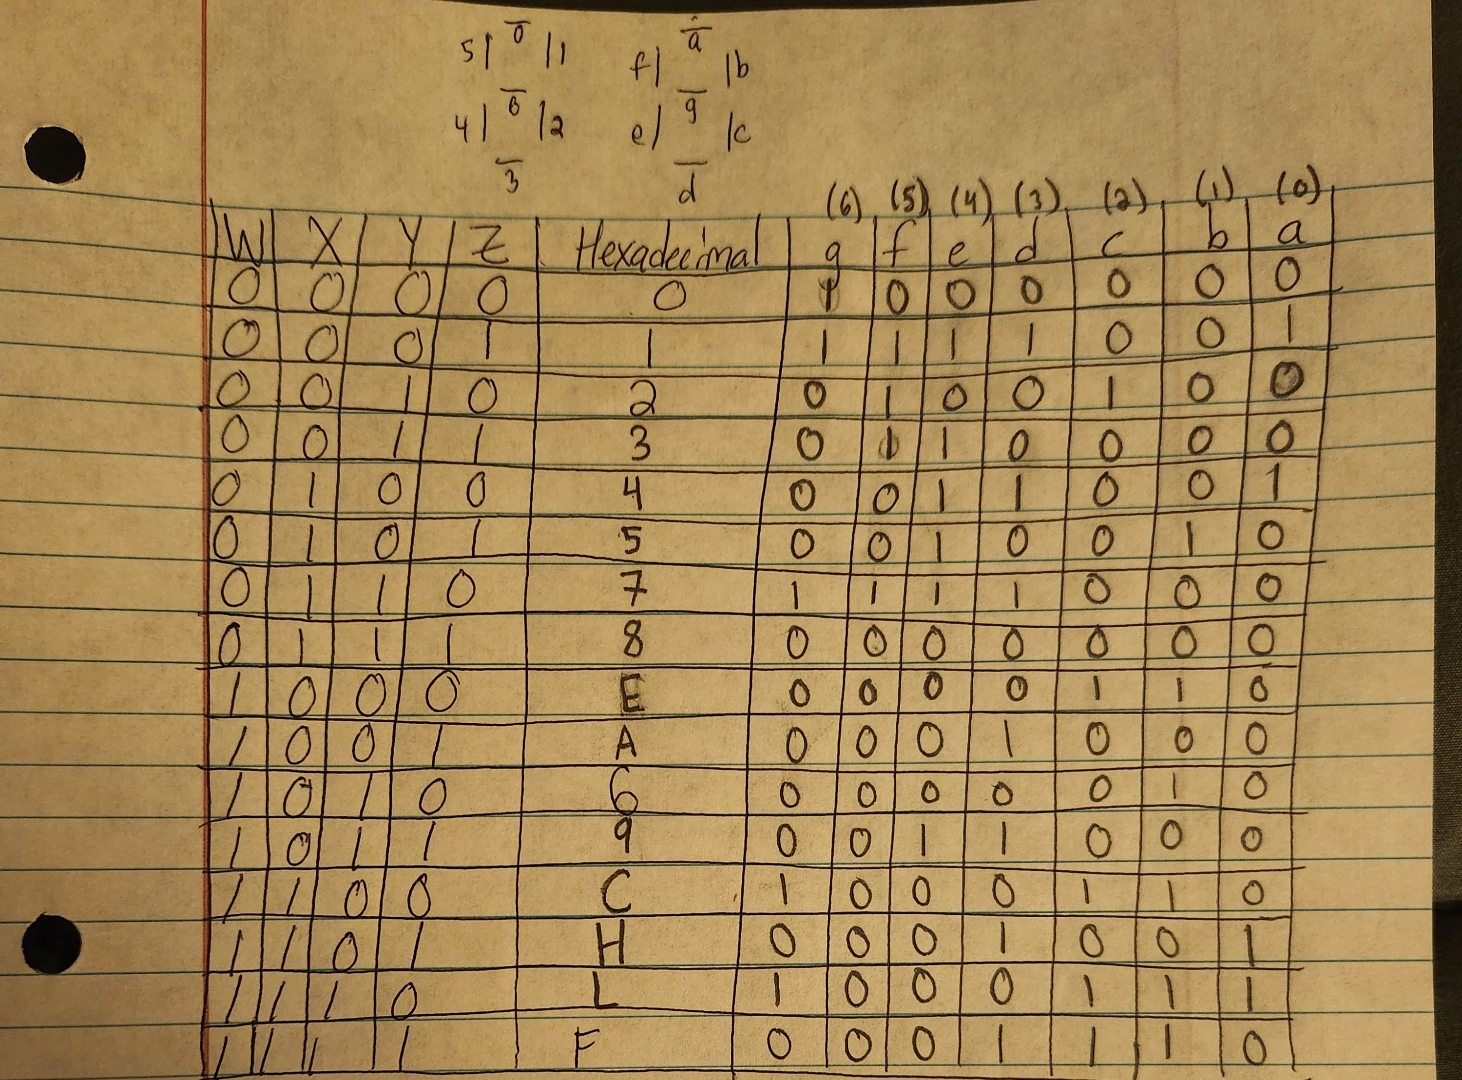 5 0 1 f a b
4 6 2 e g c
3 d
(6) (5) (4) (3) (2) (1) (0)
W X Y Z Hexadecimal g f e d c b a
0 0 0 0 0 1 0 0 0 0 0 0
0 0 0 1 1 1 1 1 1 0 0 1
0 0 1 0 2 0 1 0 0 1 0 0
0 0 1 1 3 0 1 1 0 0 0 0
0 1 0 0 4 0 0 1 1 0 0 1
0 1 0 1 5 0 0 1 0 0 1 0
0 1 1 0 7 1 1 1 1 0 0 0
0 1 1 1 8 0 0 0 0 0 0 0
1 0 0 0 E 0 0 0 0 1 1 0
1 0 0 1 A 0 0 0 1 0 0 0
1 0 1 0 6 0 0 0 0 0 1 0
1 0 1 1 9 0 0 1 1 0 0 0
1 1 0 0 C 1 0 0 0 1 1 0
1 1 0 1 H 0 0 0 1 0 0 1
1 1 1 0 L 1 0 0 0 1 1 1
1 1 1 1 F 0 0 0 1 1 1 0